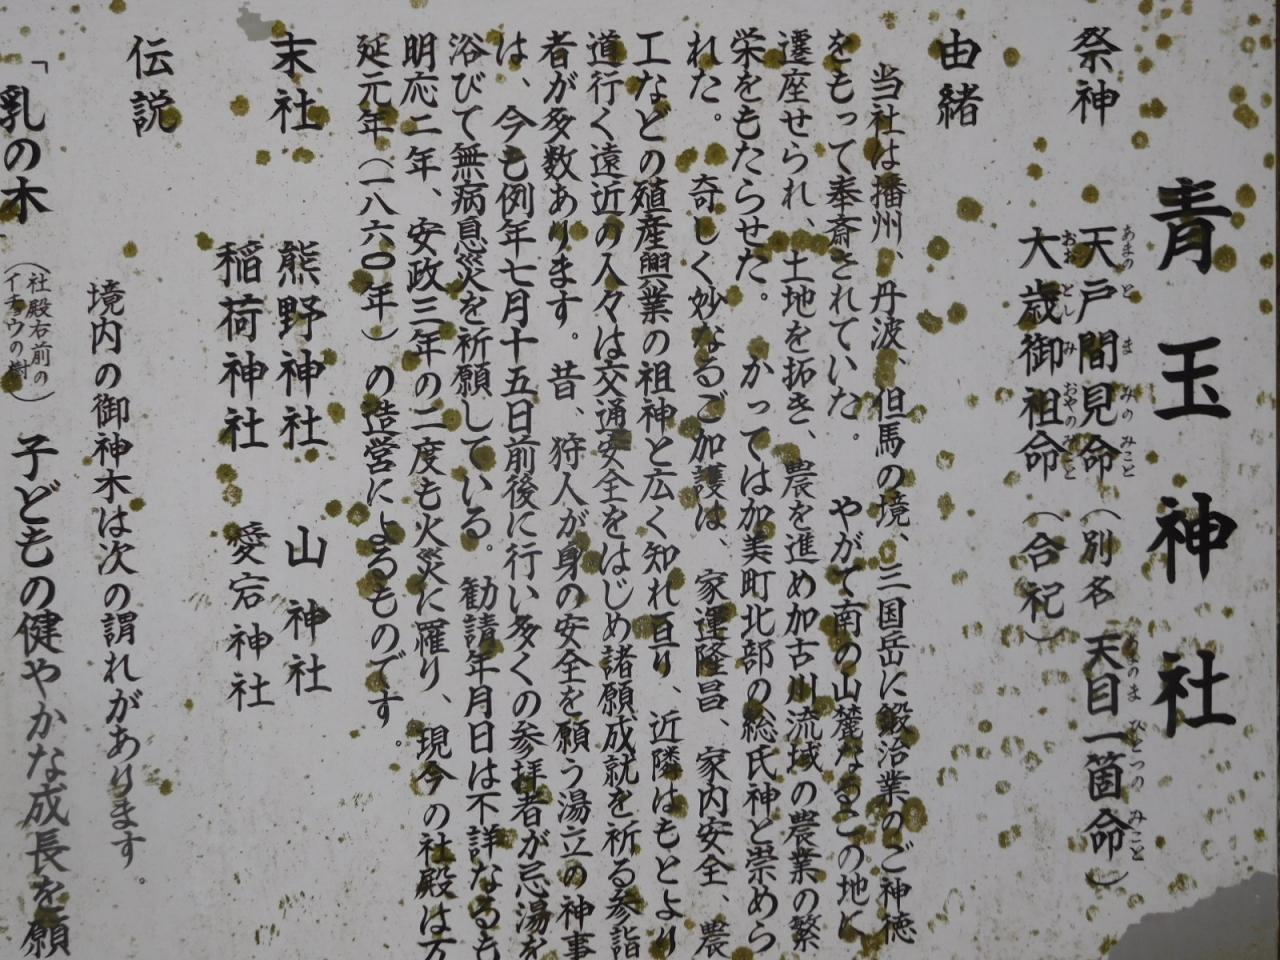 青玉神社
祭神　天戸間見命（別名　天目一箇命）
あまのとまみのみこと　あまのまひとつのみこと
大歳御祖命（合祀）
おおとしみおやのみこと
由緒
当社は播州、丹波、但馬の境、三国岳に鍛冶業のご神徳
をもって奉斎されていた。　やがて南の山麓なるこの地に
遷座せられ、土地を拓き、農を進め加古川流域の農業の繁
栄をもたらせた。　かつては加美町北部の総氏神と崇めら
れた。　奇しく妙なるご加護は、家運隆昌、家内安全、農
工などの殖産興業の祖神と広く知れ亘り、近隣はもとより
道行く遠近の人々は交通安全をはじめ諸願成就を祈る参詣
者が多数あります。　昔、狩人が身の安全を願う湯立の神事
は、今も例年七月十五日前後に行い多くの参拝者が忌湯を
浴びて無病息災を祈願している。　勧請年月日は不詳なるも
明応二年、安政三年の二度も火災に罹り、現今の社殿は万
延元年（一八六〇年）の造営によるものです。
末社　熊野神社　山神社
稲荷神社　愛宕神社
伝説
境内の御神木は次の謂れがあります。
「乳の木（社殿右前のイチョウの樹）　子どもの健やかな成長を願